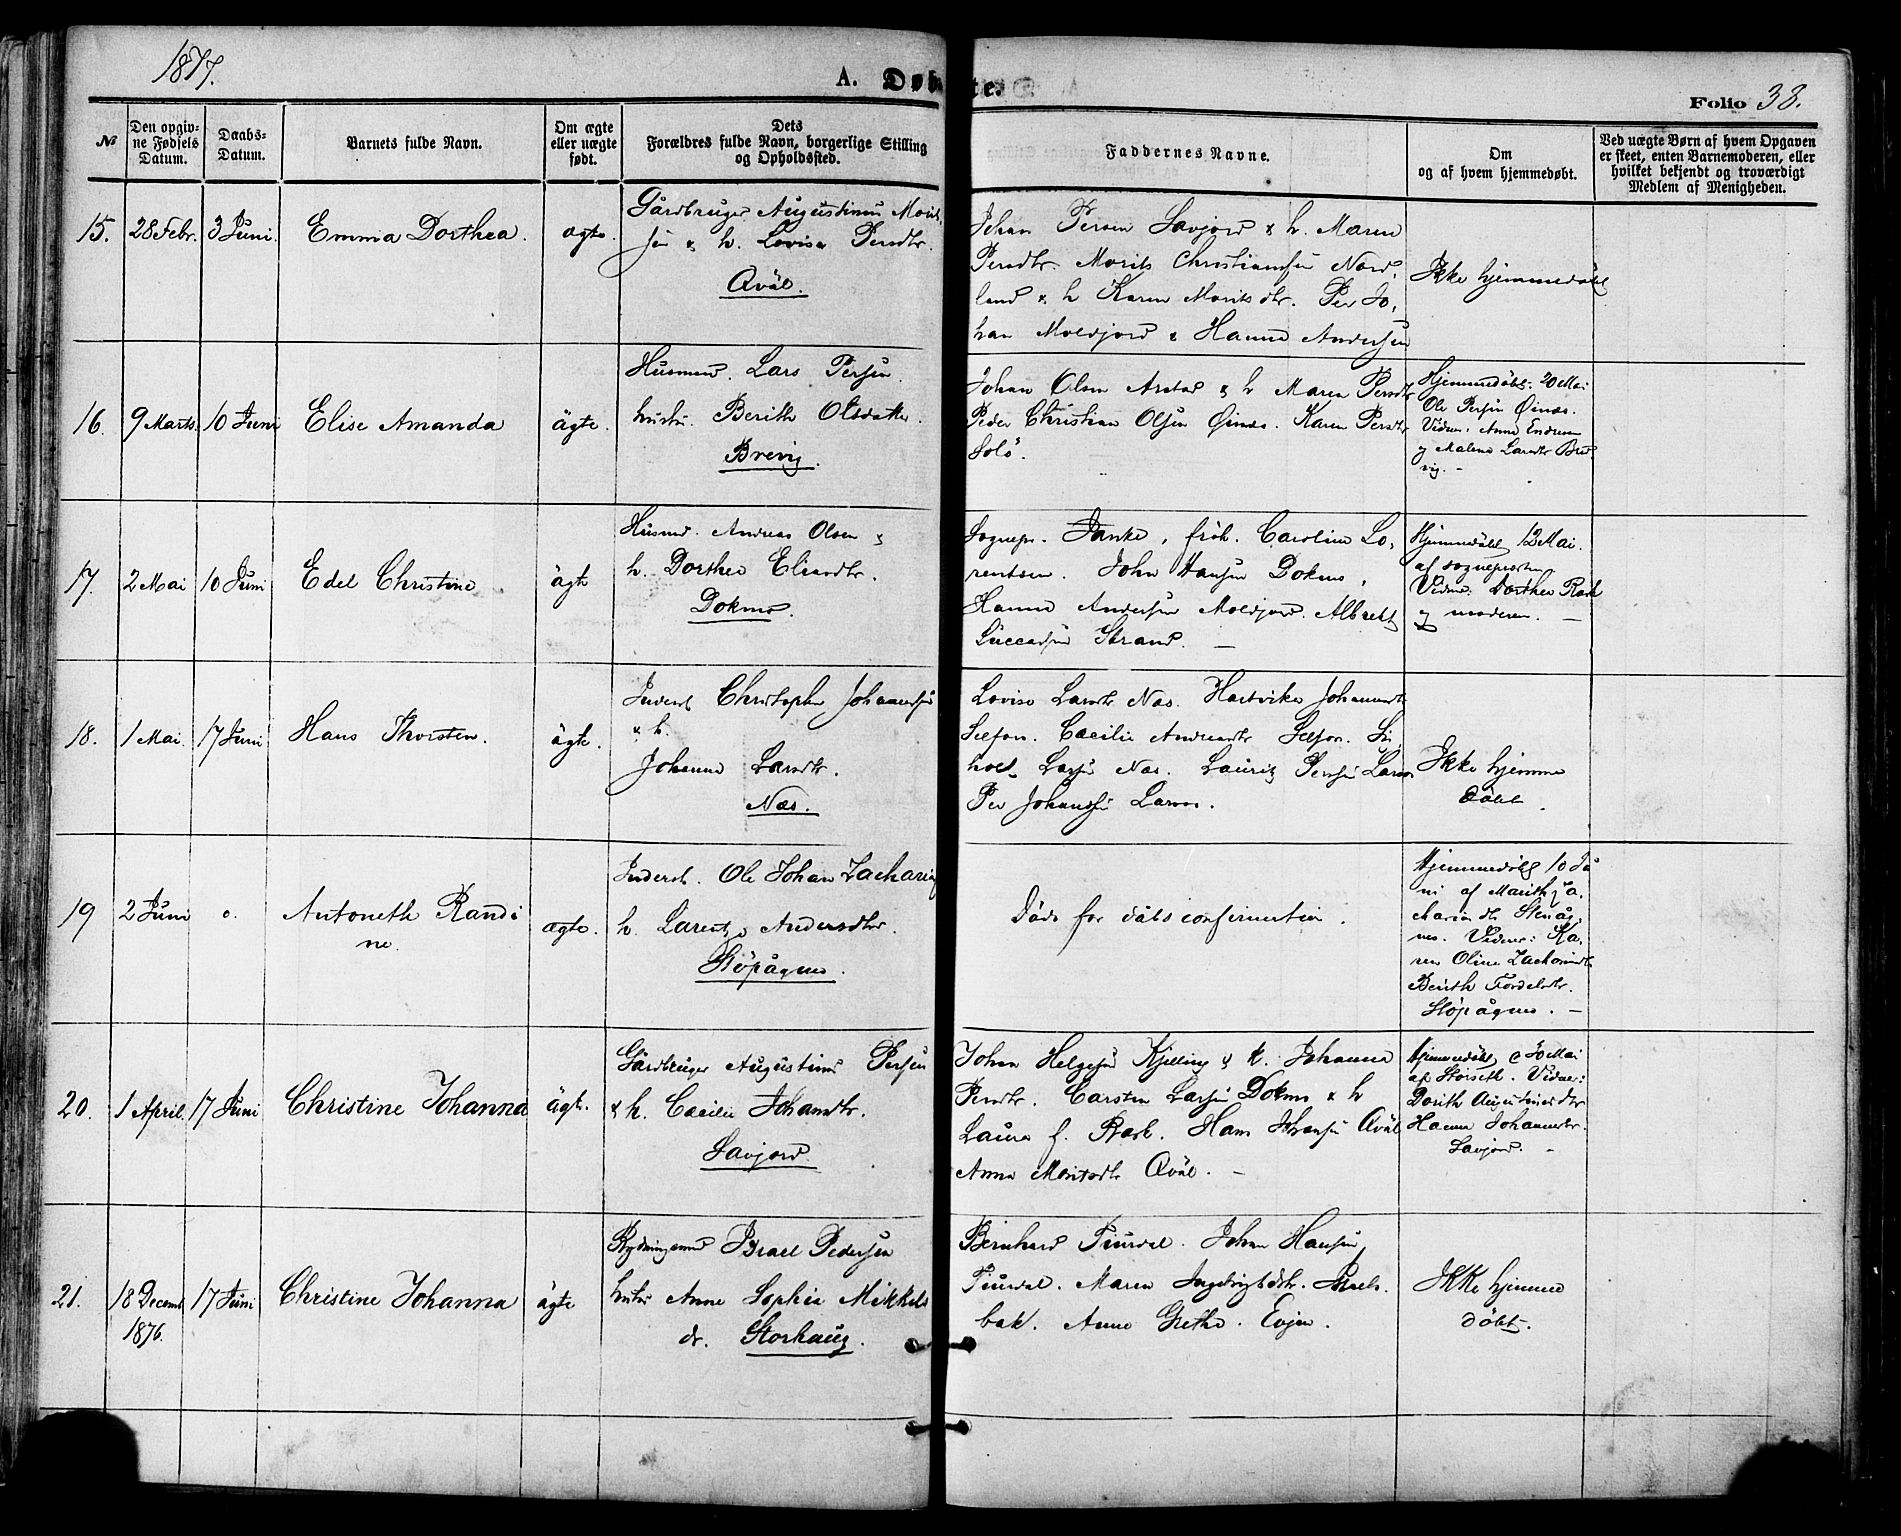 1877.
A. Døbte.
Folio 38.
№
Den opgiv-
ne Fødsels
Datum.
Daabs-
Datum.
Barnets fulde Navn.
Om ægte
eller uægte
født.
Dets
Forældres fulde Navn, borgerlige Stilling
og Opholdssted.
Faddernes Navne.
Om
og af hvem hjemmedøbt.
Ved uægte Børn af hvem Opgaven
er skeet, enten Barnemoderen, eller
hvilket bekjendt og troværdigt
Medlem af Menigheden.
15.
28 Febr.
3 Juni.
Emma Dorthea.
ægte.
Gårdbruger Augustinus Morit-
sen & h. Lovisa Persdtr.
Qväl.
Johan Persen Savjord & h. Maren
Persdtr. Morits Christiansen Nord-
land & h Karen Moritsdtr. Per Jo-
han Moldjord & Hanna Andersen
Ikke hjemmedöbt
16.
9 Marts.
10 Juni
Elise Amanda
ägte.
Husmnd. Lars Persen.
hustru Berith Olsdatter.
Brevig.
Johan Olsen Arstad & h Maren Persdtr
Peder Christian Olsen Öinæs. Karen Persdtr
Solö.
Hjemmedöbt 20 Mai
Ole Persen Öinæs.
Vidner: Anne Endresen
og Malena Larsdtr Bre-
vig. -
17.
2 Mai
10 Juni
Edel Christine
ägte
Husmd. Andreas Olsen &
h. Dorthea Eliasdtr.
Dokmo.
Sognepr. Danke, frök. Caroline Lo-
rentsen. John Hansen Dokmo,
Hanna Andersen Moldjord. Albrekt
Luccassen Strand. -
Hjemmedöbt 12 Mai.
af sognepresten
Vidner: Dorthea Rask
og moderen. -
18.
1 Mai.
17 Juni
Hans Thorsten.
ägte.
Inderst Christopher Johannessen
& h.
Johanna Larsdtr.
Næs.
Lovise Larsdtr Næs. Hartvikka Johannesdtr
Selfor. Cæcilie Andreasdtr Selfor.
Larsen Næs. Lauritz Persen Larsos
Per Johansen Larsos.
Ikke hjemme
döbt.
19
2 Juni
o.
Antoneth Randi
ne.
ægte.
Inderst. Ole Johan Zachariasen
h. Larentze Andersdtr.
Störågnes.
Död for dåbsconfirmation.
Hjemmedöbt 10 Ju
ni af Marith Za-
chariasdtr Störåg-
nes. Vidner: Ka-
ren Oline Zachariasdtr
Berith Tordelsdtr.
Störågnes. -
20.
1 April.
17 Juni
Christine Johanna
ägte.
Gårdbruger Augustinus Persen
& h. Cæcilie Johansdtr.
Savjord.
Johan Helgesen Kjelling & h. Johanna
Persdtr. Carsten Larsen Dokmo & h
Laura f. Rask. Hans Johansen Qväl
Anna Moritsdtr Qväl. -
Hjemmedöbt 20 Mai
af Storseth. Vidner:
Dorith Augustinusdtr
Hanna Johannesdtr.
Savjord. -
21.
18 Decemb
1876.
17 Juni
Christine Johanna
ägte
Rydningsmd Israel Pedersen
hustru Anne Sophia Mikkels
dr. Storhaug.
Bernhard Tiurdal. Johan Hansen,
Tiurdal. Maren Ingebrigtsdtr. Præst-
bak. Anne Grethe. Evjen.
Ikke hjemme
döbt.